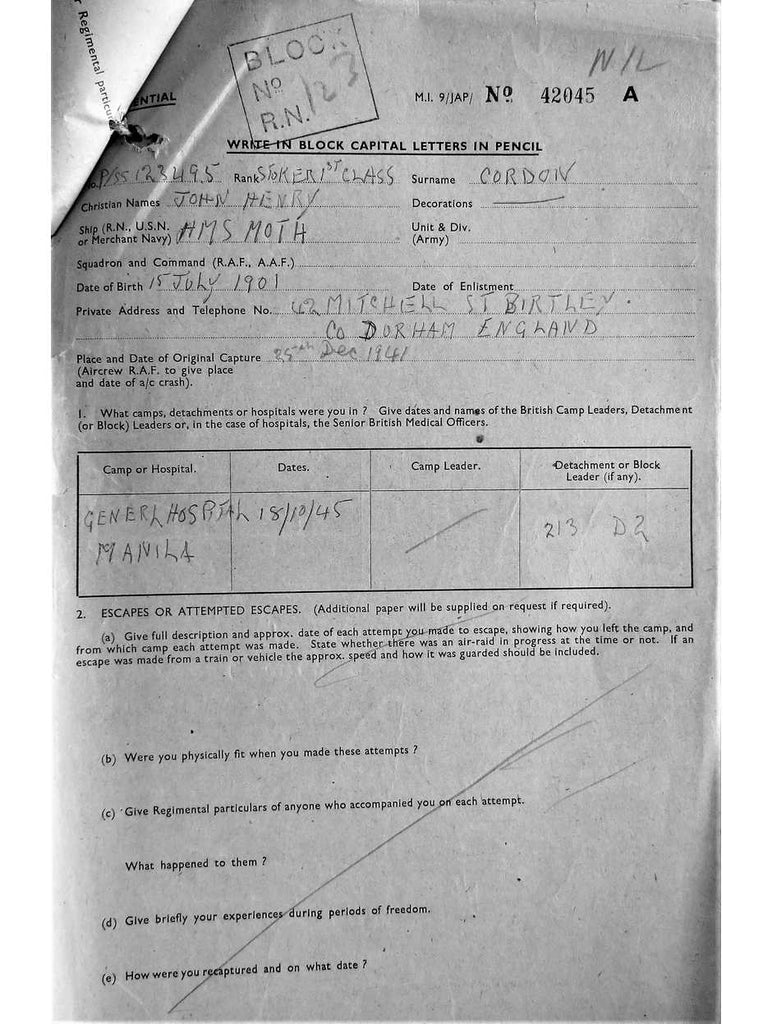 r Regimental particu
NTIAL
BLOCK
Nº 123
R.N.
NIL
M.I. 9/JAP/ Nº 42045 A
WRITE IN BLOCK CAPITAL LETTERS IN PENCIL
No. P/SS 123495 Rank STOKER 1ST CLASS Surname CORDON
Christian Names JOHN HENRY Decorations
Ship (R.N., U.S.N. or Merchant Navy) HMS MOTH Unit & Div. (Army)
Squadron and Command (R.A.F., A.A.F.)
Date of Birth 15 JULY 1901 Date of Enlistment
Private Address and Telephone No. 62 MITCHELL ST BIRTLEY.
CO DURHAM ENGLAND
Place and Date of Original Capture 25th Dec 1941
(Aircrew R.A.F. to give place
and date of a/c crash).
1. What camps, detachments or hospitals were you in ? Give dates and names of the British Camp Leaders, Detachment
(or Block) Leaders or, in the case of hospitals, the Senior British Medical Officers.
Camp or Hospital. Dates. Camp Leader. Detachment or Block Leader (if any).
GENERL HOSPITAL 18/10/45 213 D2
MANILA
2. ESCAPES OR ATTEMPTED ESCAPES. (Additional paper will be supplied on request if required).
(a) Give full description and approx. date of each attempt you made to escape, showing how you left the camp, and
from which camp each attempt was made. State whether there was an air-raid in progress at the time or not. If an
escape was made from a train or vehicle the approx. speed and how it was guarded should be included.
(b) Were you physically fit when you made these attempts ?
(c) Give Regimental particulars of anyone who accompanied you on each attempt.
What happened to them ?
(d) Give briefly your experiences during periods of freedom.
(e) How were you recaptured and on what date ?